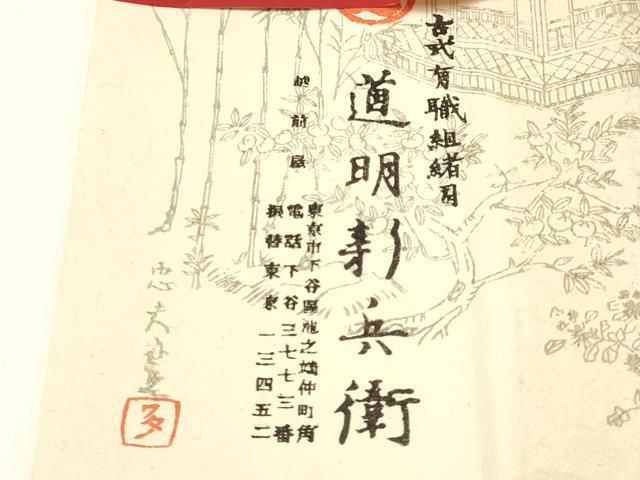 古式有職組緒司
道明新兵衛
越前屋
東京市下谷區池之端仲町角
電話下谷三七七三番
振替東京一三四五二
多